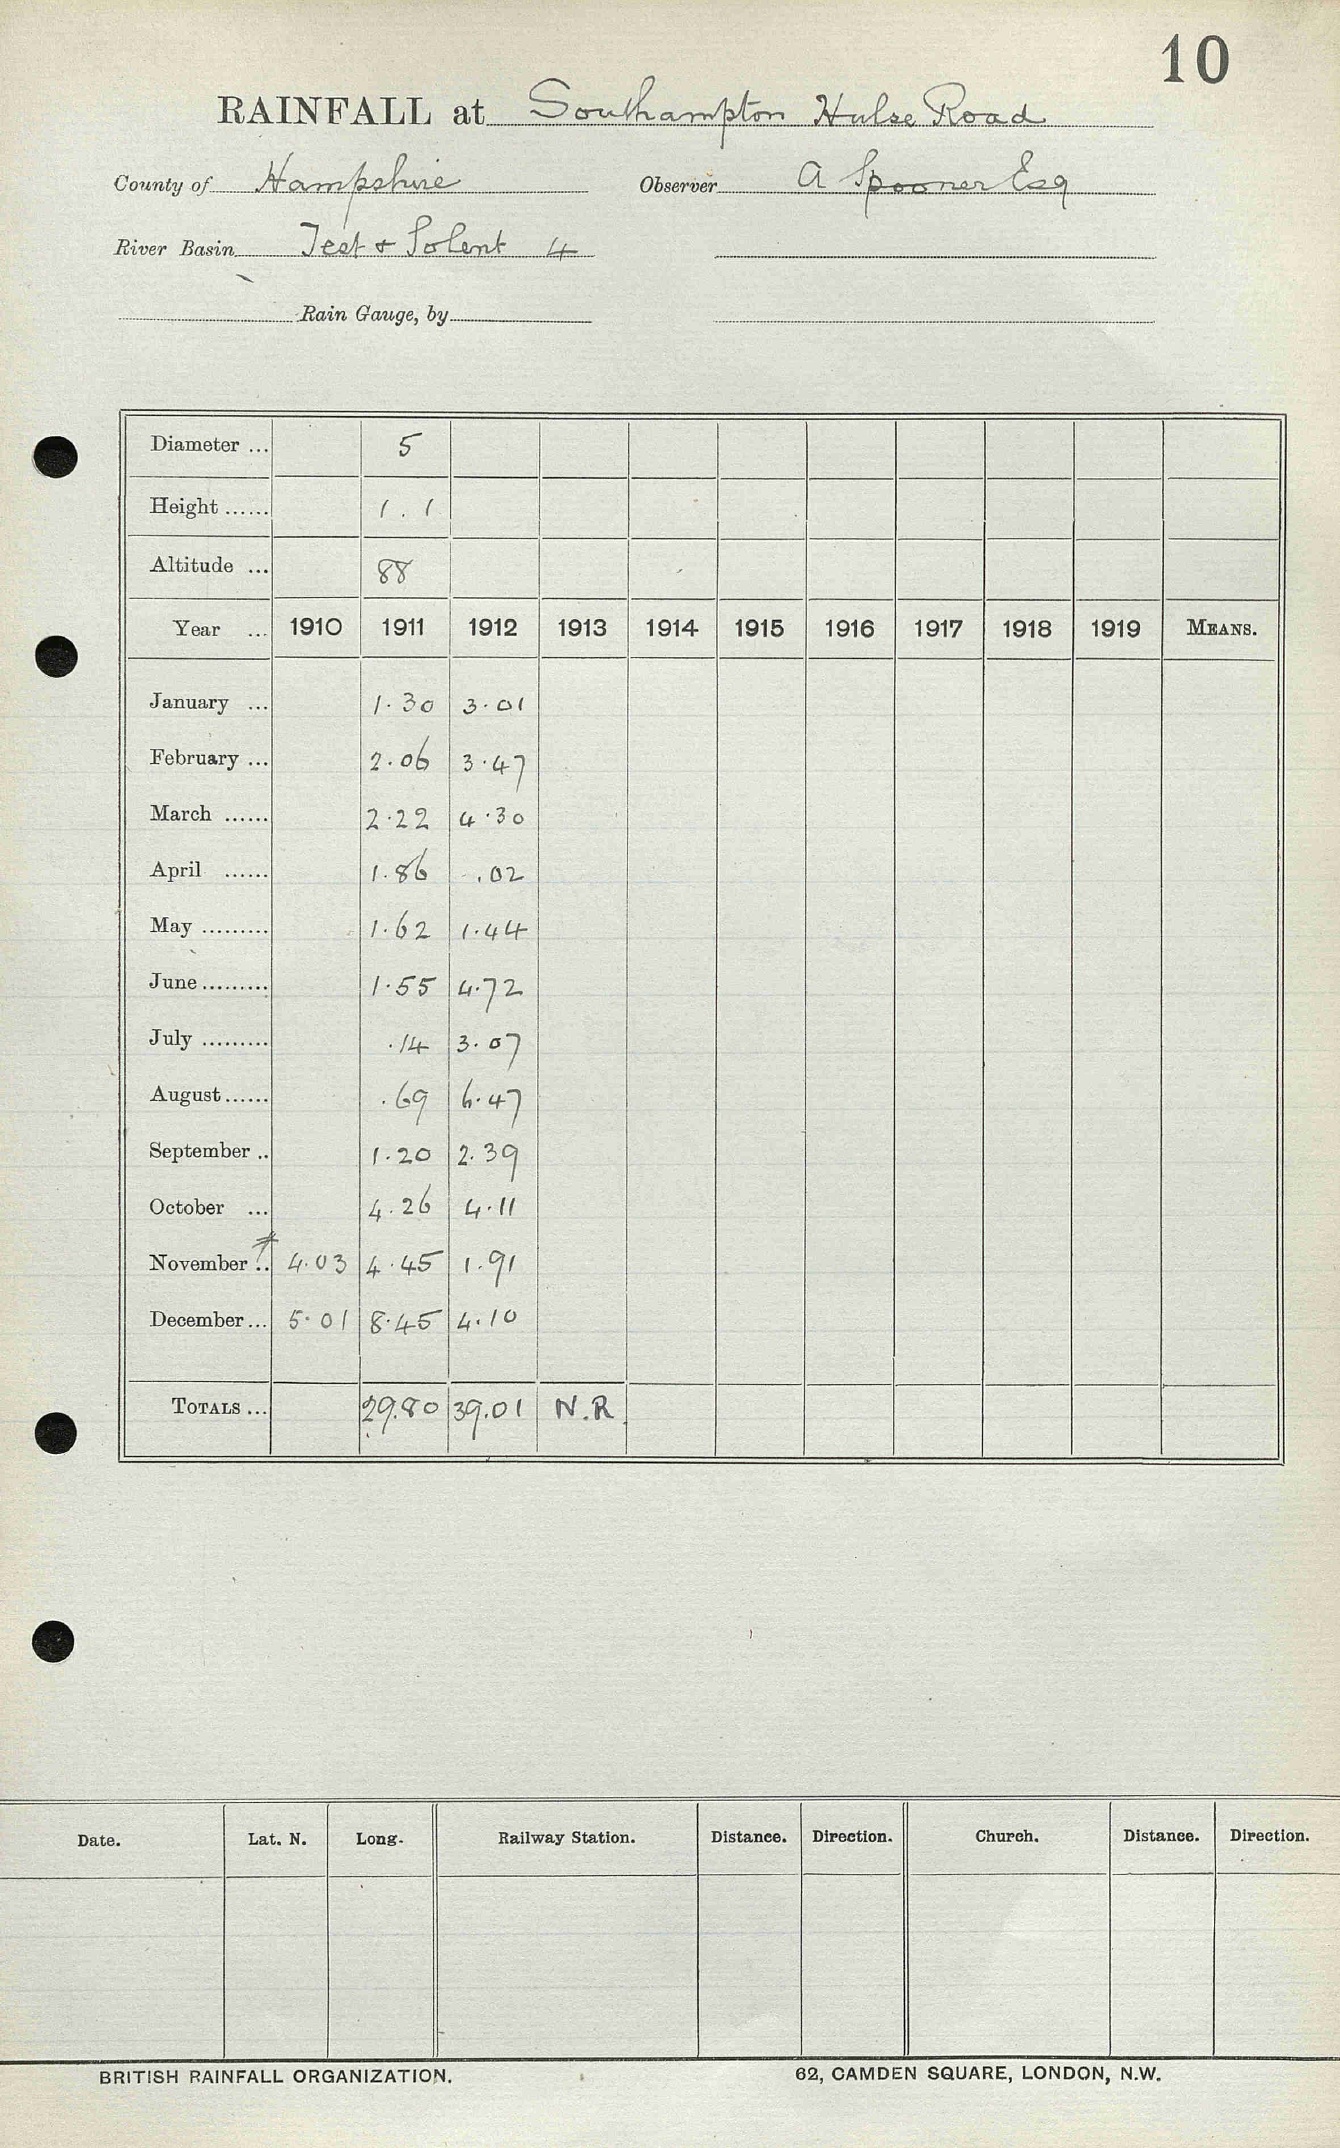 10
RAINFALL at Southampton Hulse Road
County of Hampshire Observer A Spooner Esq
River Basin Test + Solent 4
Rain Gauge, by
Diameter ... 5
Height ...... 1.1
Altitude ... 88
Year ... 1910 1911 1912 1913 1914 1915 1916 1917 1918 1919 MEANS.
January ... 1.30 3.01
February ... 2.06 3.47
March ...... 2.22 4.30
April ...... 1.86 .02
May ......... 1.62 1.44
June ......... 1.55 4.72
July ......... .14 3.07
August ...... .69 6.47
September .. 1.20 2.39
October ... 4.26 4.11
November .. 4.03 4.45 1.91
December ... 5.01 8.45 4.10
TOTALS ... 29.80 39.01 N.R.
Date. Lat. N. Long. Railway Station. Distance. Direction. Church. Distance. Direction.
BRITISH RAINFALL ORGANIZATION. 62, CAMDEN SQUARE, LONDON, N.W.